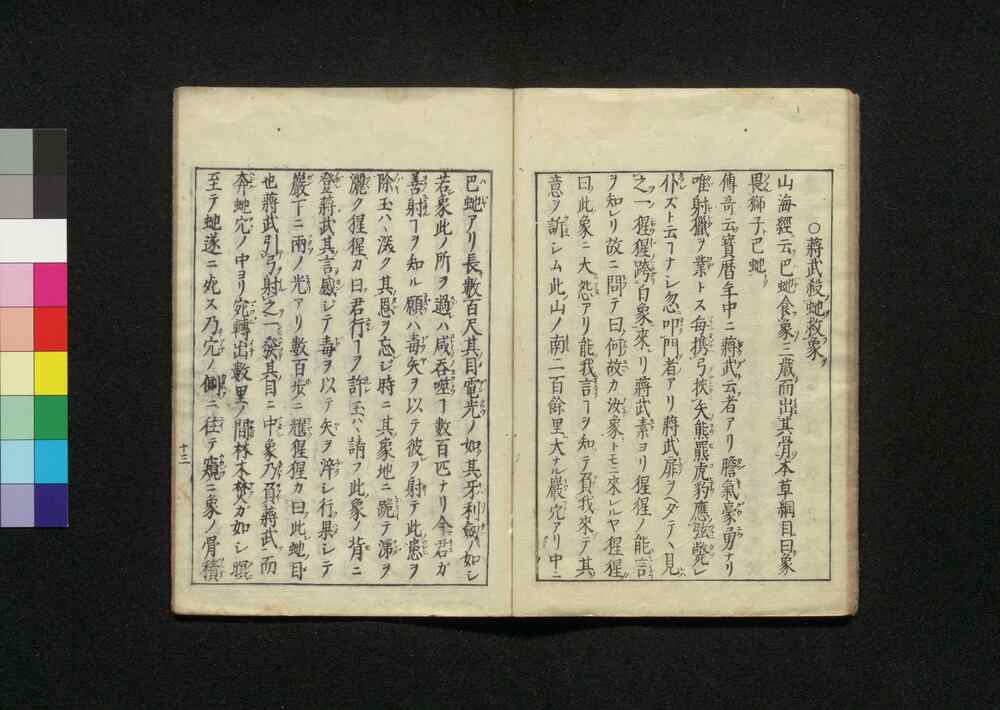 ○蔣武殺虵救象
山海經云巴虵食象三歳而出其骨本草綱目曰象
畏獅子巴虵
傳奇云寳暦年中ニ蔣武云者アリ膽氣豪勇ナリ
唯射獵ヲ業トス毎携弓挾矢熊羆虎豹應弦斃レ
仆ズト云ヿナシ忽叩門者アリ蔣武扉ヲヘダテヽ見
之一猩猩跨白象來リ蔣武素ヨリ猩猩ノ能言
ヲ知レリ故ニ問テ曰何故カ汝象トモニ來レルヤ猩猩
曰此象ニ大怨アリ能我言ヿヲ知テ負我來テ其
意ヲ訴シム此山ノ南二百餘里大ナル巖穴アリ中ニ
巴虵アリ長數百尺其目電光ノ如其牙利劔ノ如シ
若象此ノ所ヲ過ハ咸吞噬ヿ數百匹ナリ今君ガ
善射ヿヲ知ル願ハ毒矢ヲ以テ彼ヲ射テ此患ヲ
除玉ハヽ滋ク其恩ヲ忘シ時ニ其象地ニ跪テ涕ヲ
灑ク猩猩カ曰君行ヿヲ許玉ハヽ請フ此象ノ背ニ
登蔣武其言感ジテ毒ヲ以テ矢ヲ淬シ行果シテ
巖下ニ兩ノ光アリ數百歩ニ耀猩猩カ曰此虵目
也蔣武引弓射之一發其目ニ中象乃負蔣武而
奔虵穴ノ中ヨリ宛轉出數里ノ間林木焚ガ如シ暝
至テ虵遂ニ死ス乃穴ノ側ニ往テ窺ニ象ノ骨積
十三